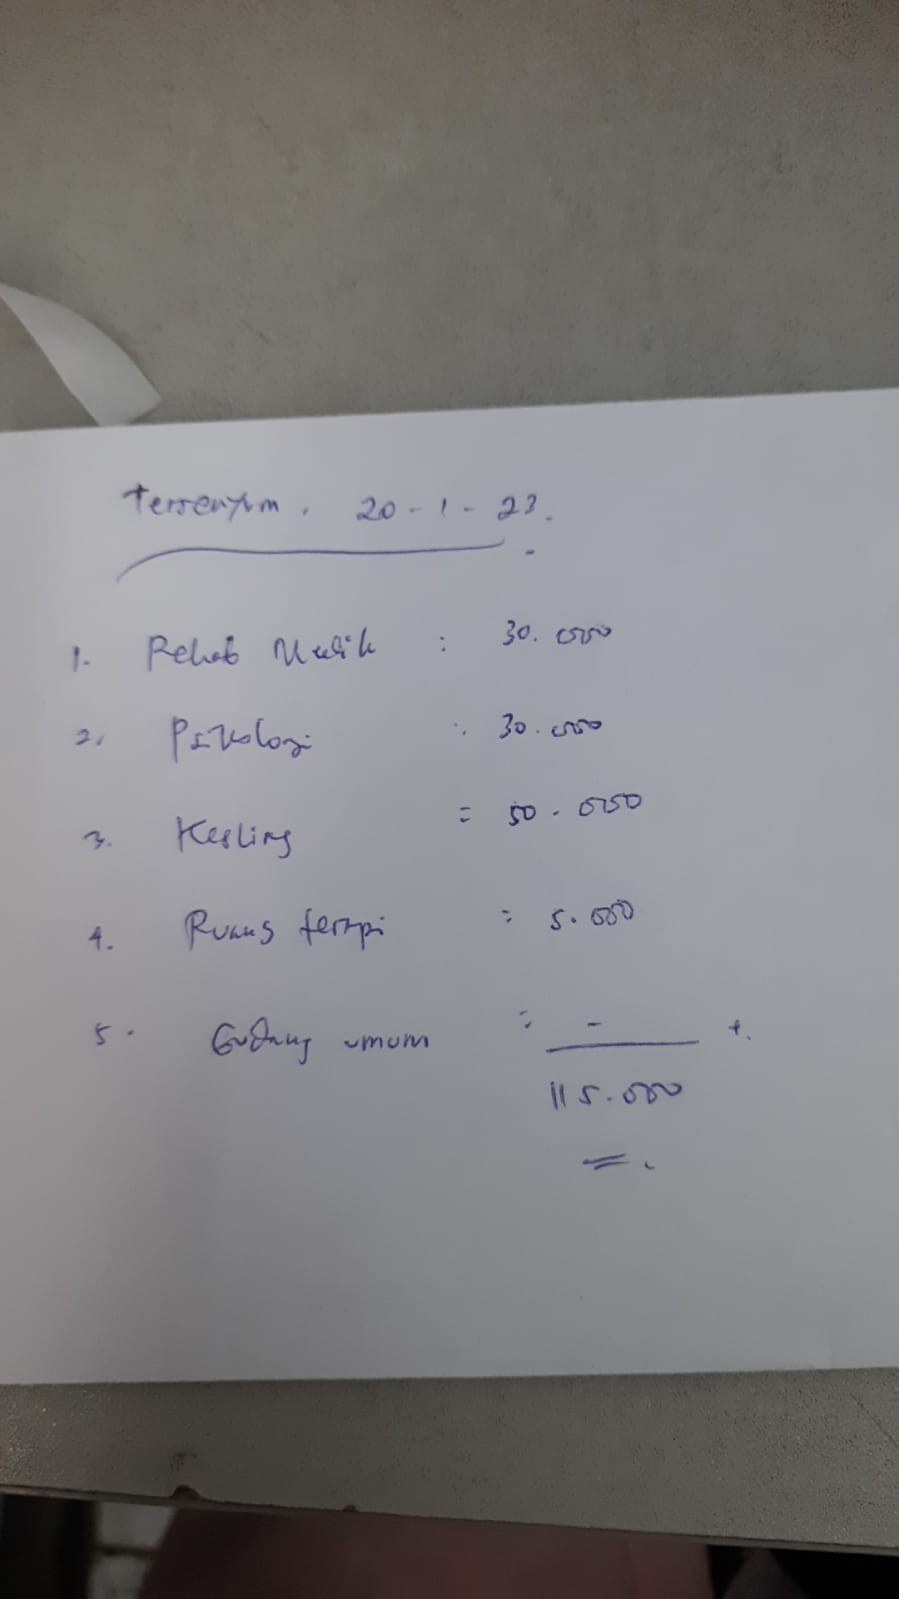 Tersenyum. 20-1-23.
1. Rehab Medik : 30.000
2. Psikologi : 30.000
3. Kesling = 50.000
4. Ruang terapi : 5.000
5. Gudang umum = - +.
115.000
=.